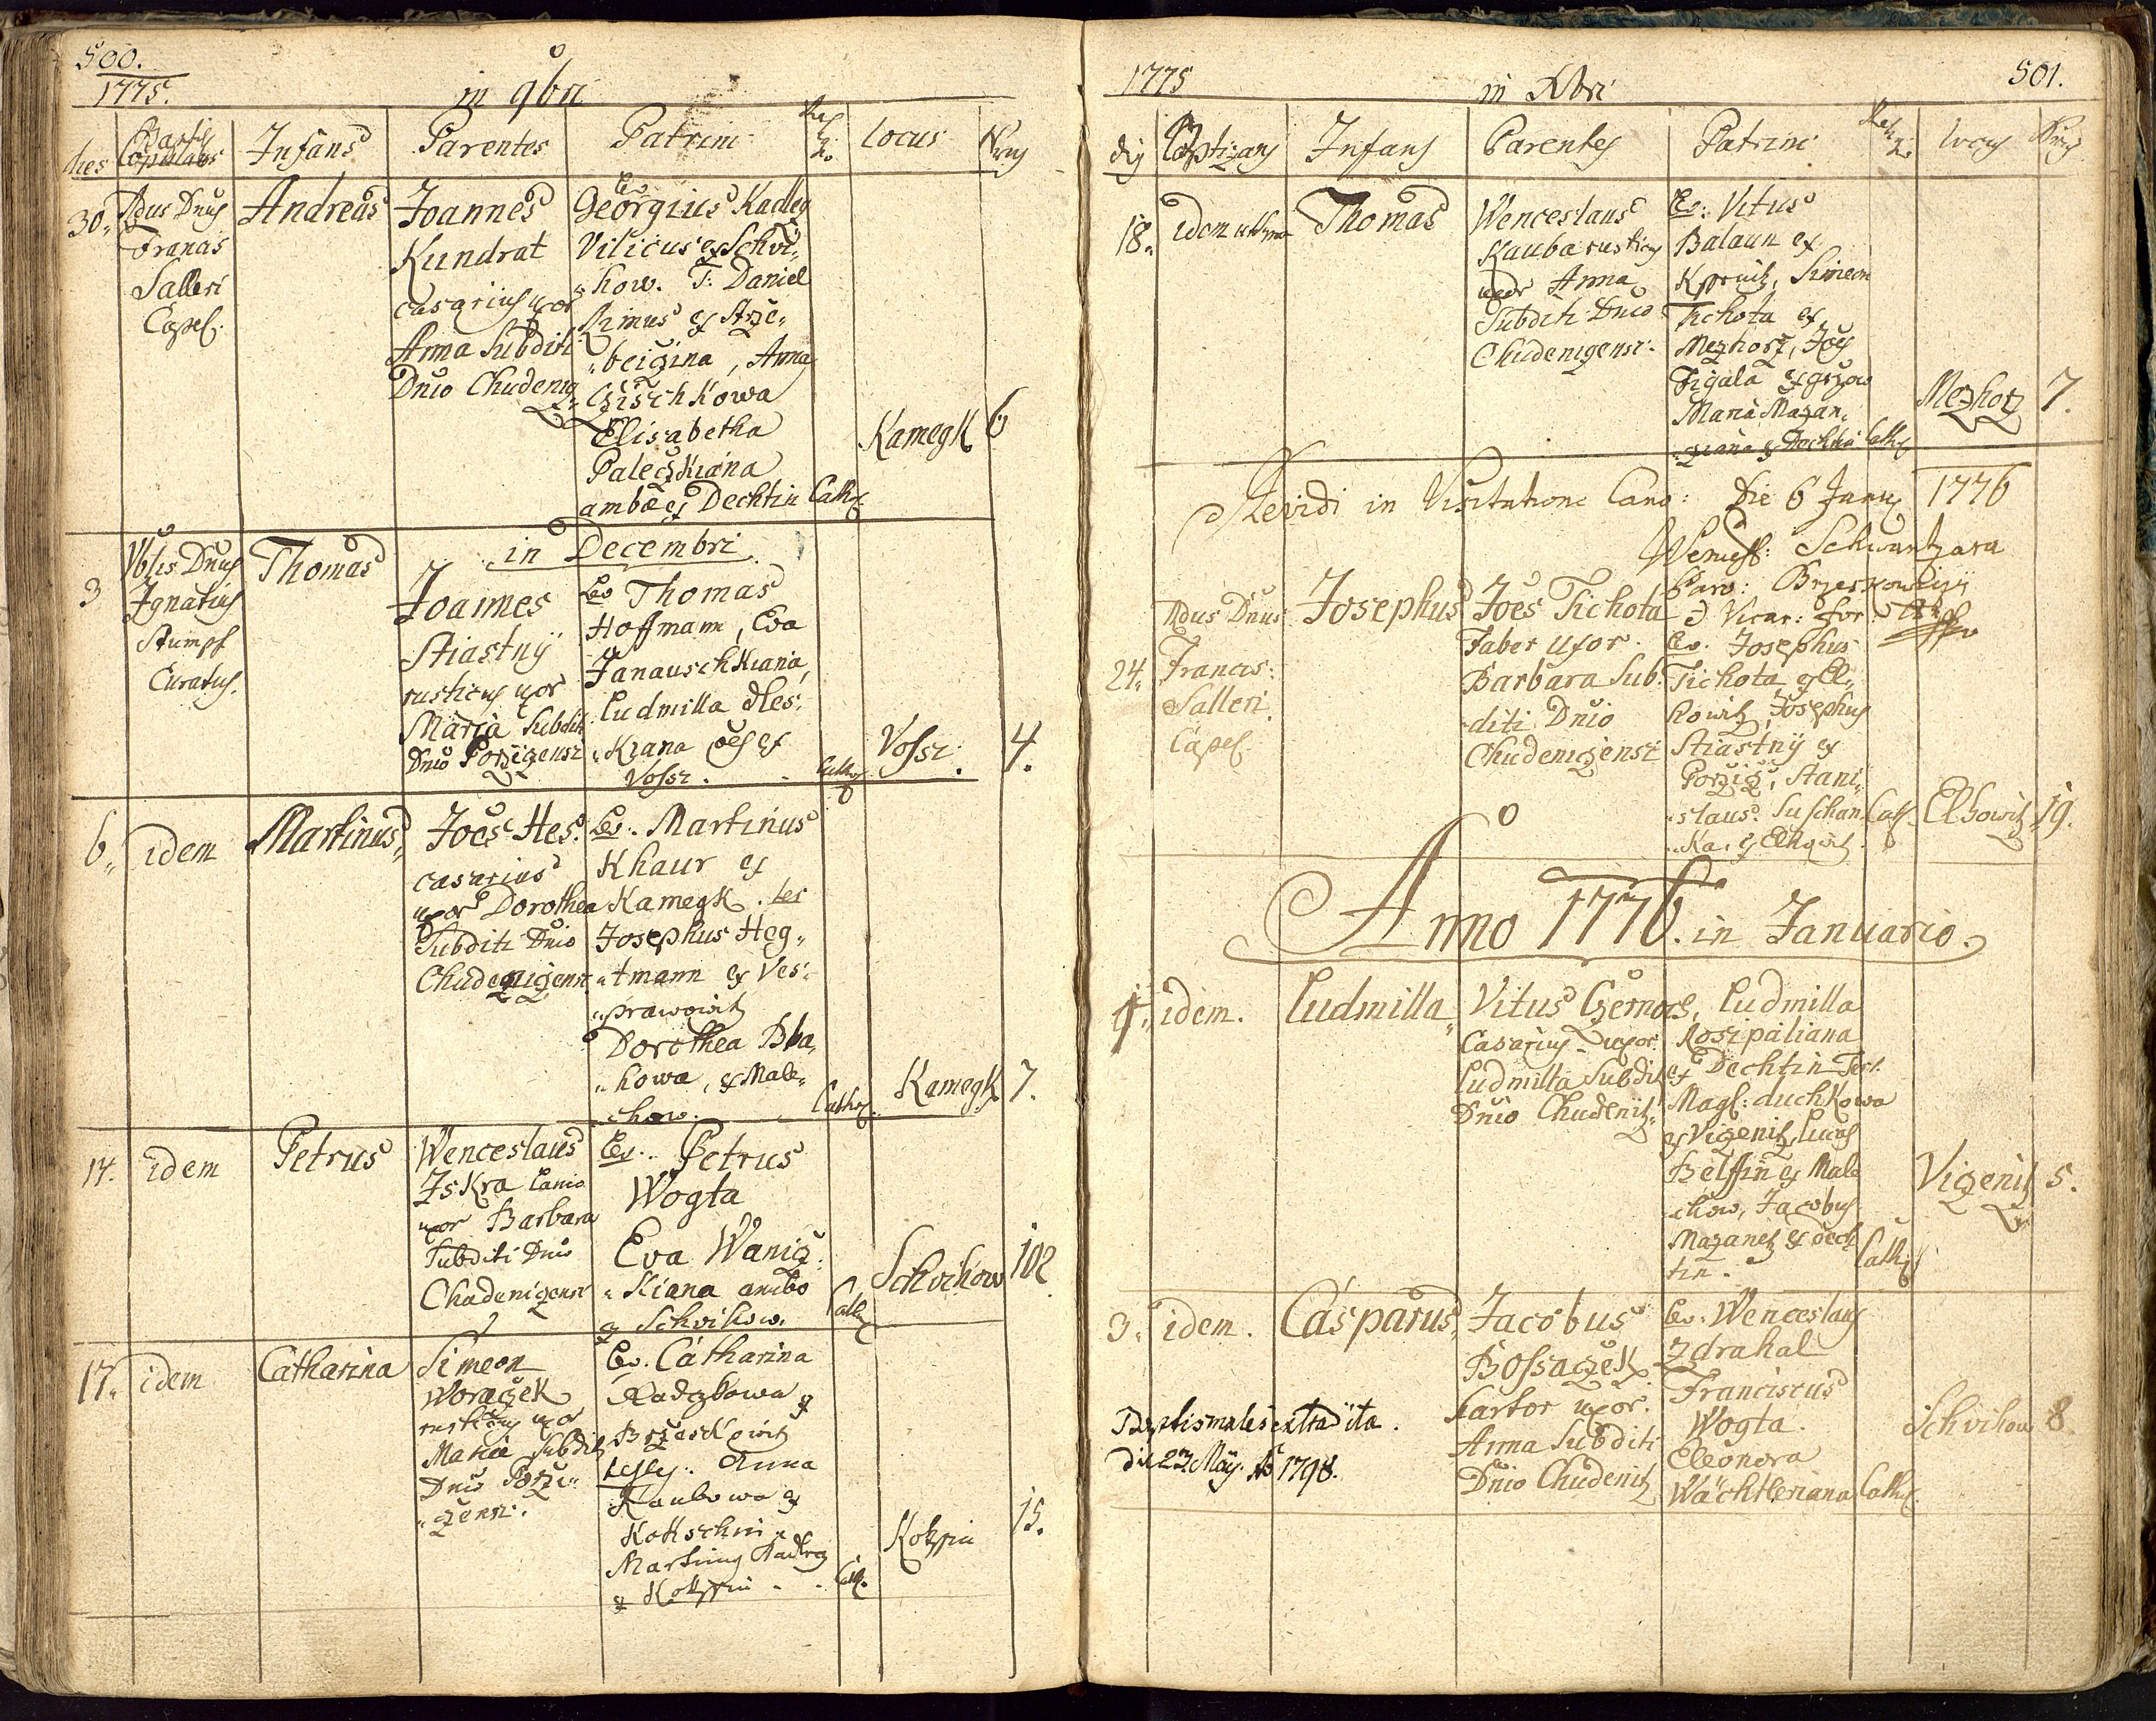 500.
1775.
in 9bri
dies
Copulans
Infans
Parentes
Patrini
Locus
30.
Rdus Dnus
Francis
Salleri
Capel.
Andreas
Joannes
Kundrat
casarius uxor
Anna Subditi
Dnio Chudeniz
Lev.
Georgius Kadlez
Vilicus ex Schvi„
„how. T: Daniel
Simus ex Strze„
„beizina, Anna
Czischkowa
Elisabetha
Paleczkiana
ambae ex Dechtin
Cath.
Kamegk
6
in Decembri
3
Dnus
Ignatius
Stumpf
Curatus.
Thomas
Joannes
Stiastnÿ
rusticus uxor
Maria Subditi
Dnio Porzizensi
Lev Thomas
Hoffmann, Eva
Janauschkiana
Ludmilla Hles„
„kiana oes ex
Vossi.
Cath.
Vossi.
4.
6.
idem
Martinus
Joes Hes.
casarius
uxor Dorothea
Subditi Dnio
Chudenizensi
Lev. Martinus
Khaur ex
Kamegk. tes
Josephus Heg„
„tmann ex Ves„
„prawowitz
Dorothea Bla„
„howa, ex Male„
chow.
Cath.
Kamegk
7.
14.
idem
Petrus
Wenceslaus
Iskra Lanio
uxor Barbara
Subditi Dnio
Chudenizensi
Lev. Petrus
Wogta
Eva Waniz„
„kiana ambo
ex Schvihow.
Cath.
Schvihow
102
17.
idem
Catharina
Simeon
Woraczek
rusticus uxor
Maria Subditi
Dnio Porzi„
„zensi.
Lev. Catharina
Kadczkowa ex
Brzeskowitz
testes: Anna
Kaubowa ex
Kokschin
Martinus Kadlez
ex Kokssin
Cath.
Kokssin
15.
1775
in Xbri
501.
dies
Baptizans
Infans
Parentes
Patrini
Locus
18.
idem
Thomas
Wenceslaus
Kauba rusticus
uxor Anna
Subditi Dnio
Chudenizensi.
Lev: Vitus
Balaun ex
Simeon
Tichota ex
Mezhorz, Joes
Figala ex
Maria Mazan„
Cath.
Mezhorz
7.
Revidi in Visitatione Cano: Die 6 Janu 1776
Wencesl: Schwantzara
Par: Brzeskowizÿ
Vicar: For:
24.
Rdus Dnus
Francis:
Salleri
Capel.
Josephus
Joes Tichota
Faber uxor
Barbara Sub„
„diti Dnio
Chudenizensi
Lev. Josephus
Tichota ex El„
howitz, Josephus
Stiastnÿ ex
Porziz, Stani„
„slaus Suschan„
„ka ex Elhowitz
Cath.
Elhowitz
19.
Anno 1776. in Januario.
1.
idem.
Ludmilla
Vitus Czernoch
Casarius uxor
Ludmilla Subditi
Dnio Chudenitz
Ludmilla
Rosipaliana
ex Dechtin Test.
Magd: duchkowa
ex Vizenitz, Lucas
Belssin ex Male
chow, Jacobus
Mazanetz ex dech
tin.
Cath.
Vizenitz
5.
3.
idem.
Casparus
Jacobus
Bossaczek
Sartor uxor.
Anna Subditi
Dnio Chudenitz
Lev. Wenceslaus
Zdrahal
Franciscus
Wogta.
Eleonora
Wächtleriana
Cath.
Schvihow
8.
Baptismales extradita.
die 27 Maÿ. Ao 1798.